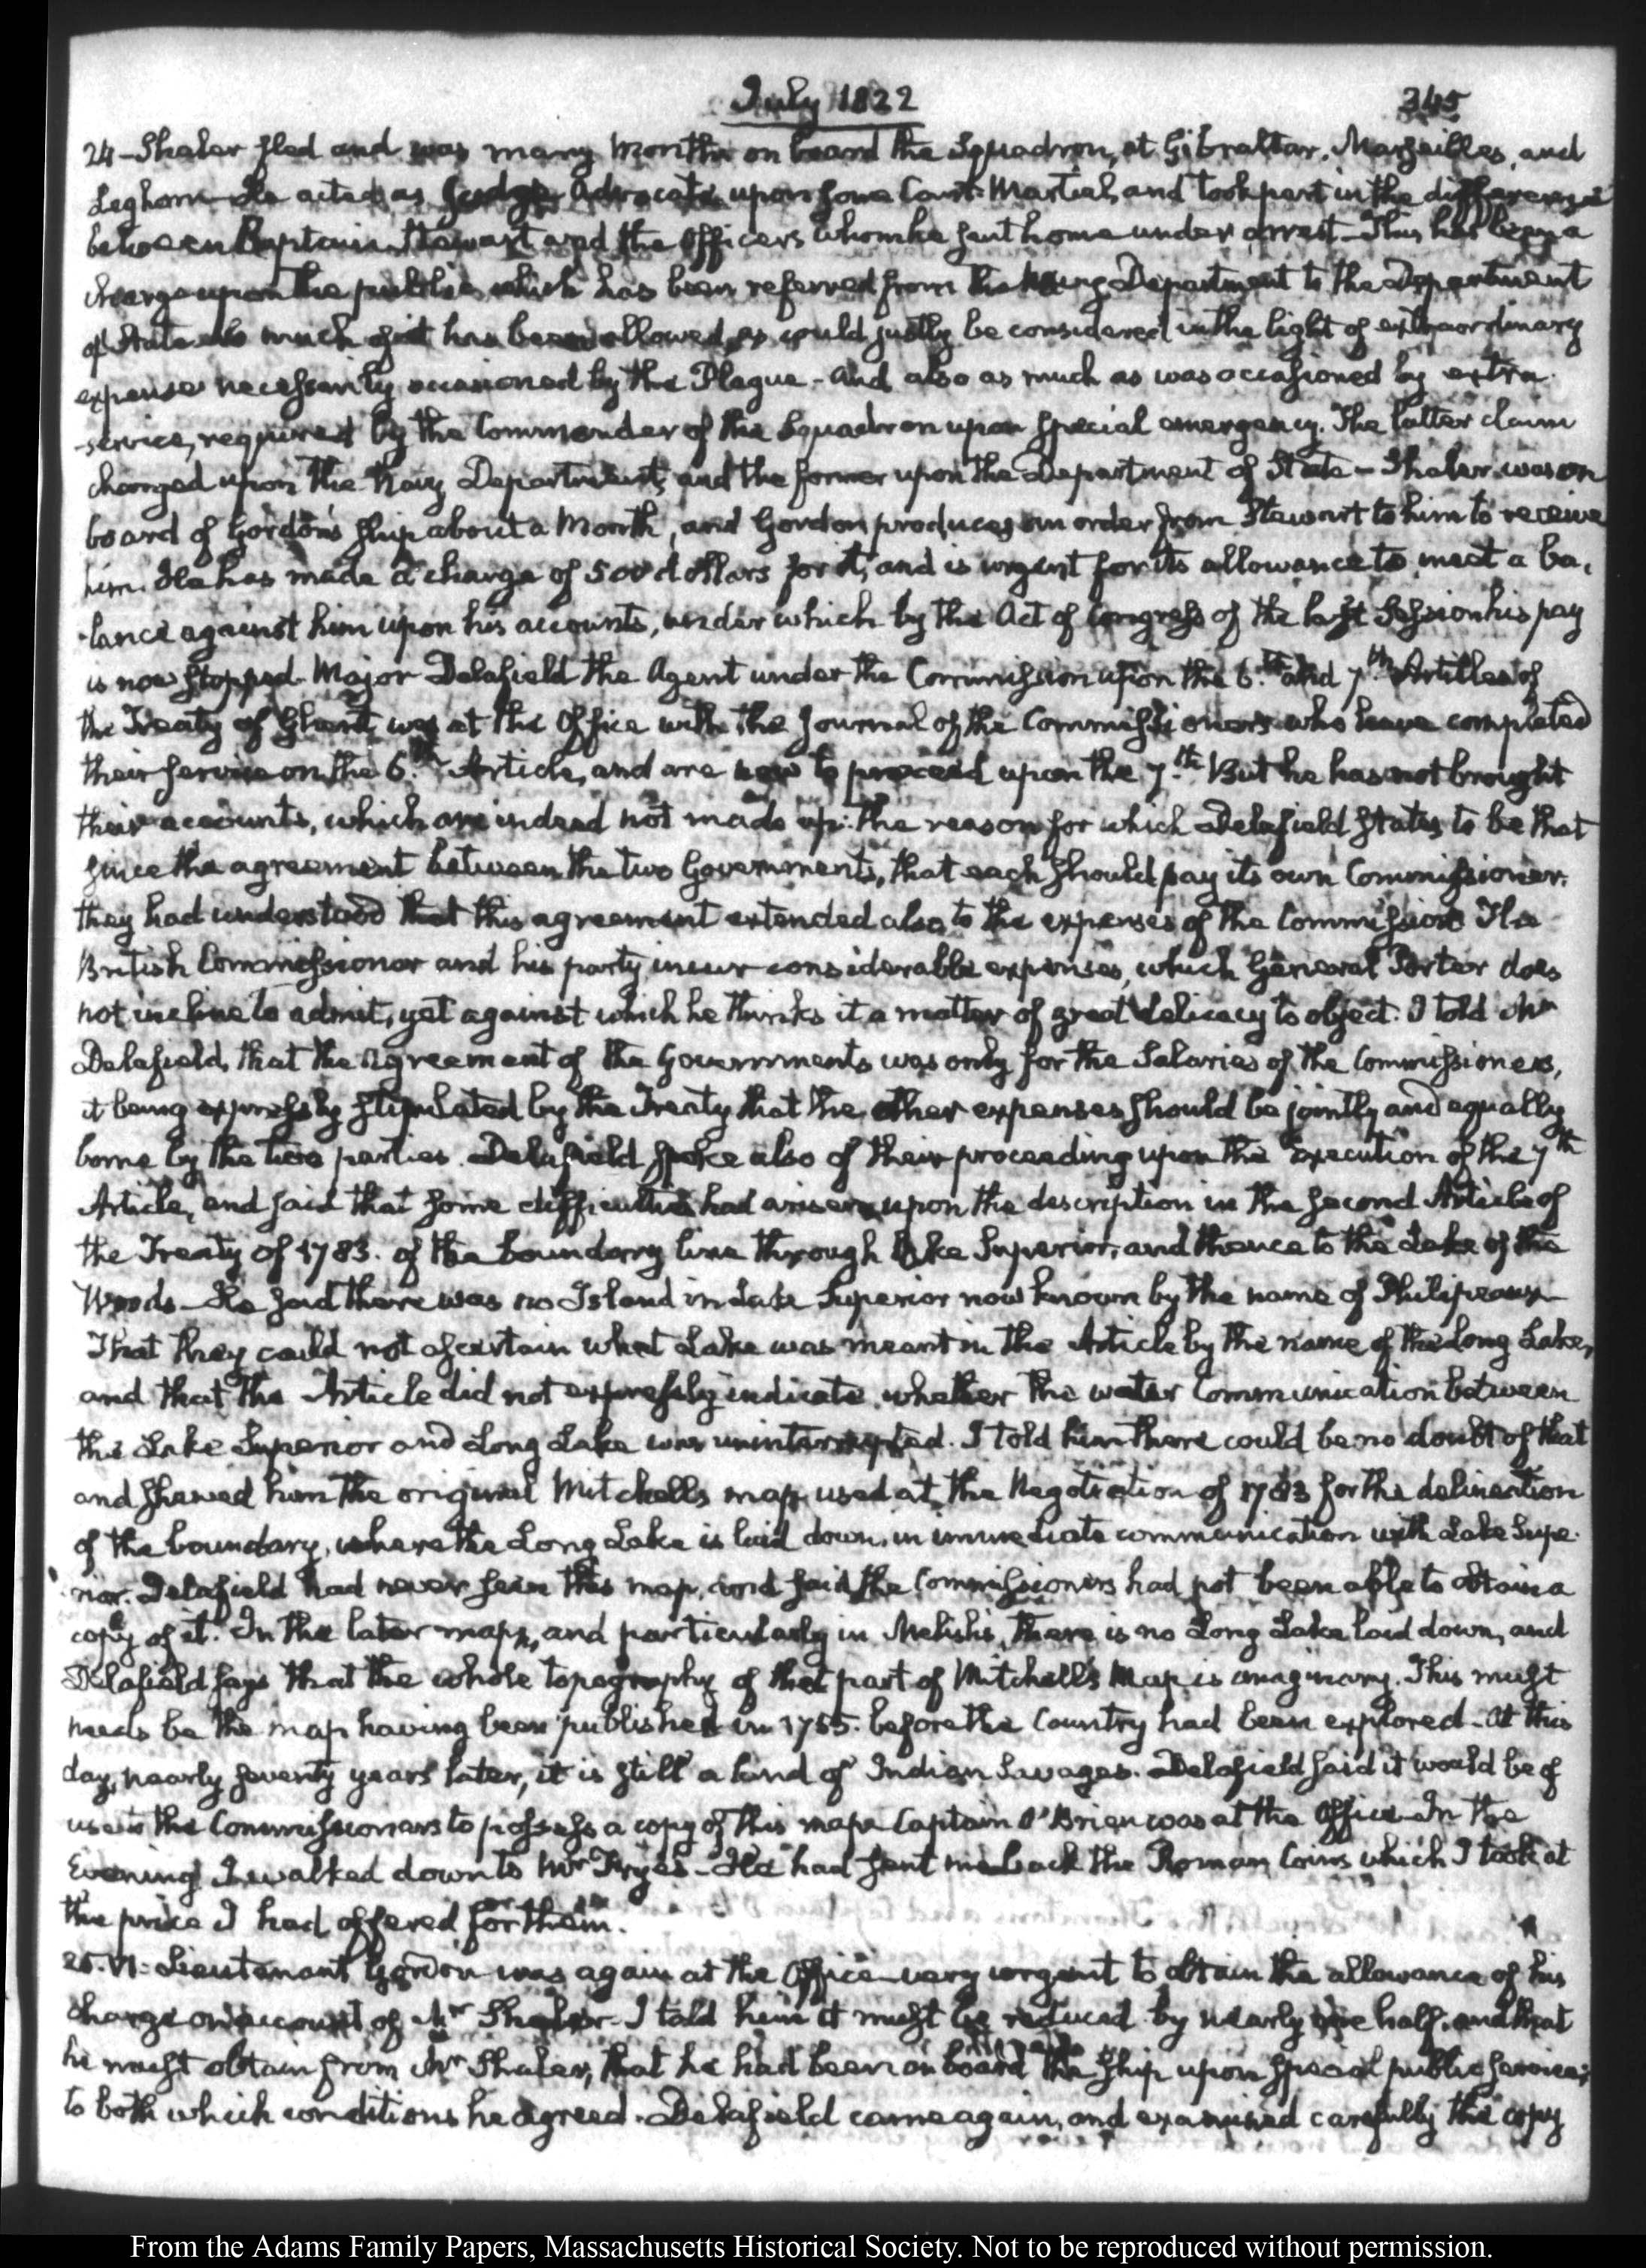 July 1822
345
24 – Shaler fled and was many Months on board the Squadron, at Gibraltar, Marseilles, and
Leghorn – He acted as Judge Advocate upon some Court-Martial, and took part in the differences
between Captain Stewart and the Officers whom he sent home under arrest – This has been a
charge upon the public which has been referred from the Navy Department to the Department
of State so much of it has been allowed, as could justly be considered in the light of extraordinary
expense necessarily occasioned by the Plague – and also as much as was occasioned by extra
-service, required by the Commander of the Squadron upon special emergency. The latter claim
charged upon the Navy Department, and the former upon the Department of State – Shaler was on
board of Gordon's ship about a Month, and Gordon produces an order from Stewart to him to receive
him. He has made a charge of 500 dollars for it, and is urgent for its allowance to meet a ba-
-lance against him upon his accounts, under which by the Act of Congress of the last Session his pay
is now stopped. Major Delafield the Agent under the Commission upon the 6.th and 7.th Articles of
the Treaty of Ghent, was at the Office with the Journal of the Commissioners who have completed
their service on the 6.th Article, and are now to proceed upon the 7.th But he has not brought
their accounts, which are indeed not made up: the reason for which Delafield states to be that
since the agreement between the two Governments, that each should pay its own Commissioner,
they had understood that this agreement extended also to the expenses of the Commission The
British Commissioner and his party incur considerable expenses, which General Porter does
not incline to admit, yet against which he thinks it a matter of great delicacy to object. I told Mr
Delafield, that the agreement of the Governments was only for the Salaries of the Commissioners,
it being expressly stipulated by the Treaty that the other expenses should be jointly and equally
borne by the two parties. Delafield spoke also of their proceeding upon the execution of the 7th
Article, and said that some difficulties had arisen upon the description in the second Article of
the Treaty of 1783. of the boundary line through Lake Superior, and thence to the Lake of the
Woods – He said there was no Island in Lake Superior now known by the name of Philipeaux
That they could not ascertain what Lake was meant in the Article by the name of the Long Lake,
and that the Article did not expressly indicate, whether the water Communication between
the Lake Superior and Long Lake was uninterrupted. I told him there could be no doubt of that
and shewed him the original Mitchells map, used at the Negotiation of 1783 for the delineation
of the boundary, where the Long Lake is laid down, in immediate communication with Lake Supe-
-rior. Delafield had never seen this map, and said the Commissioners had not been able to obtain a
copy of it. In the later maps, and particularly in Melish's, there is no Long Lake laid down, and
Delafield says that the whole topography of that part of Mitchell's Map is imaginary. This must
needs be the map having been published in 1755. before the Country had been explored – At this
day, nearly seventy years later, it is still a land of Indian Savages. Delafield said it would be of
use to the Commissioners to possess a copy of this map. Captain O'Brien was at the Office – In the
Evening I walked down to Mr Fryes – He had sent me back the Roman Coins which I took at
the price I had offered for them.
25. VI. Lieutenant Gordon was again at the Office – very urgent to obtain the allowance of his
charge on account of Mr Shaler – I told him it must be reduced by nearly one half, and that
he must obtain from Mr Shaler, that he had been on board the ship upon special public service;
to both which conditions he agreed. Delafield came again, and examined carefully the copy
From the Adams Family Papers, Massachusetts Historical Society. Not to be reproduced without permission.